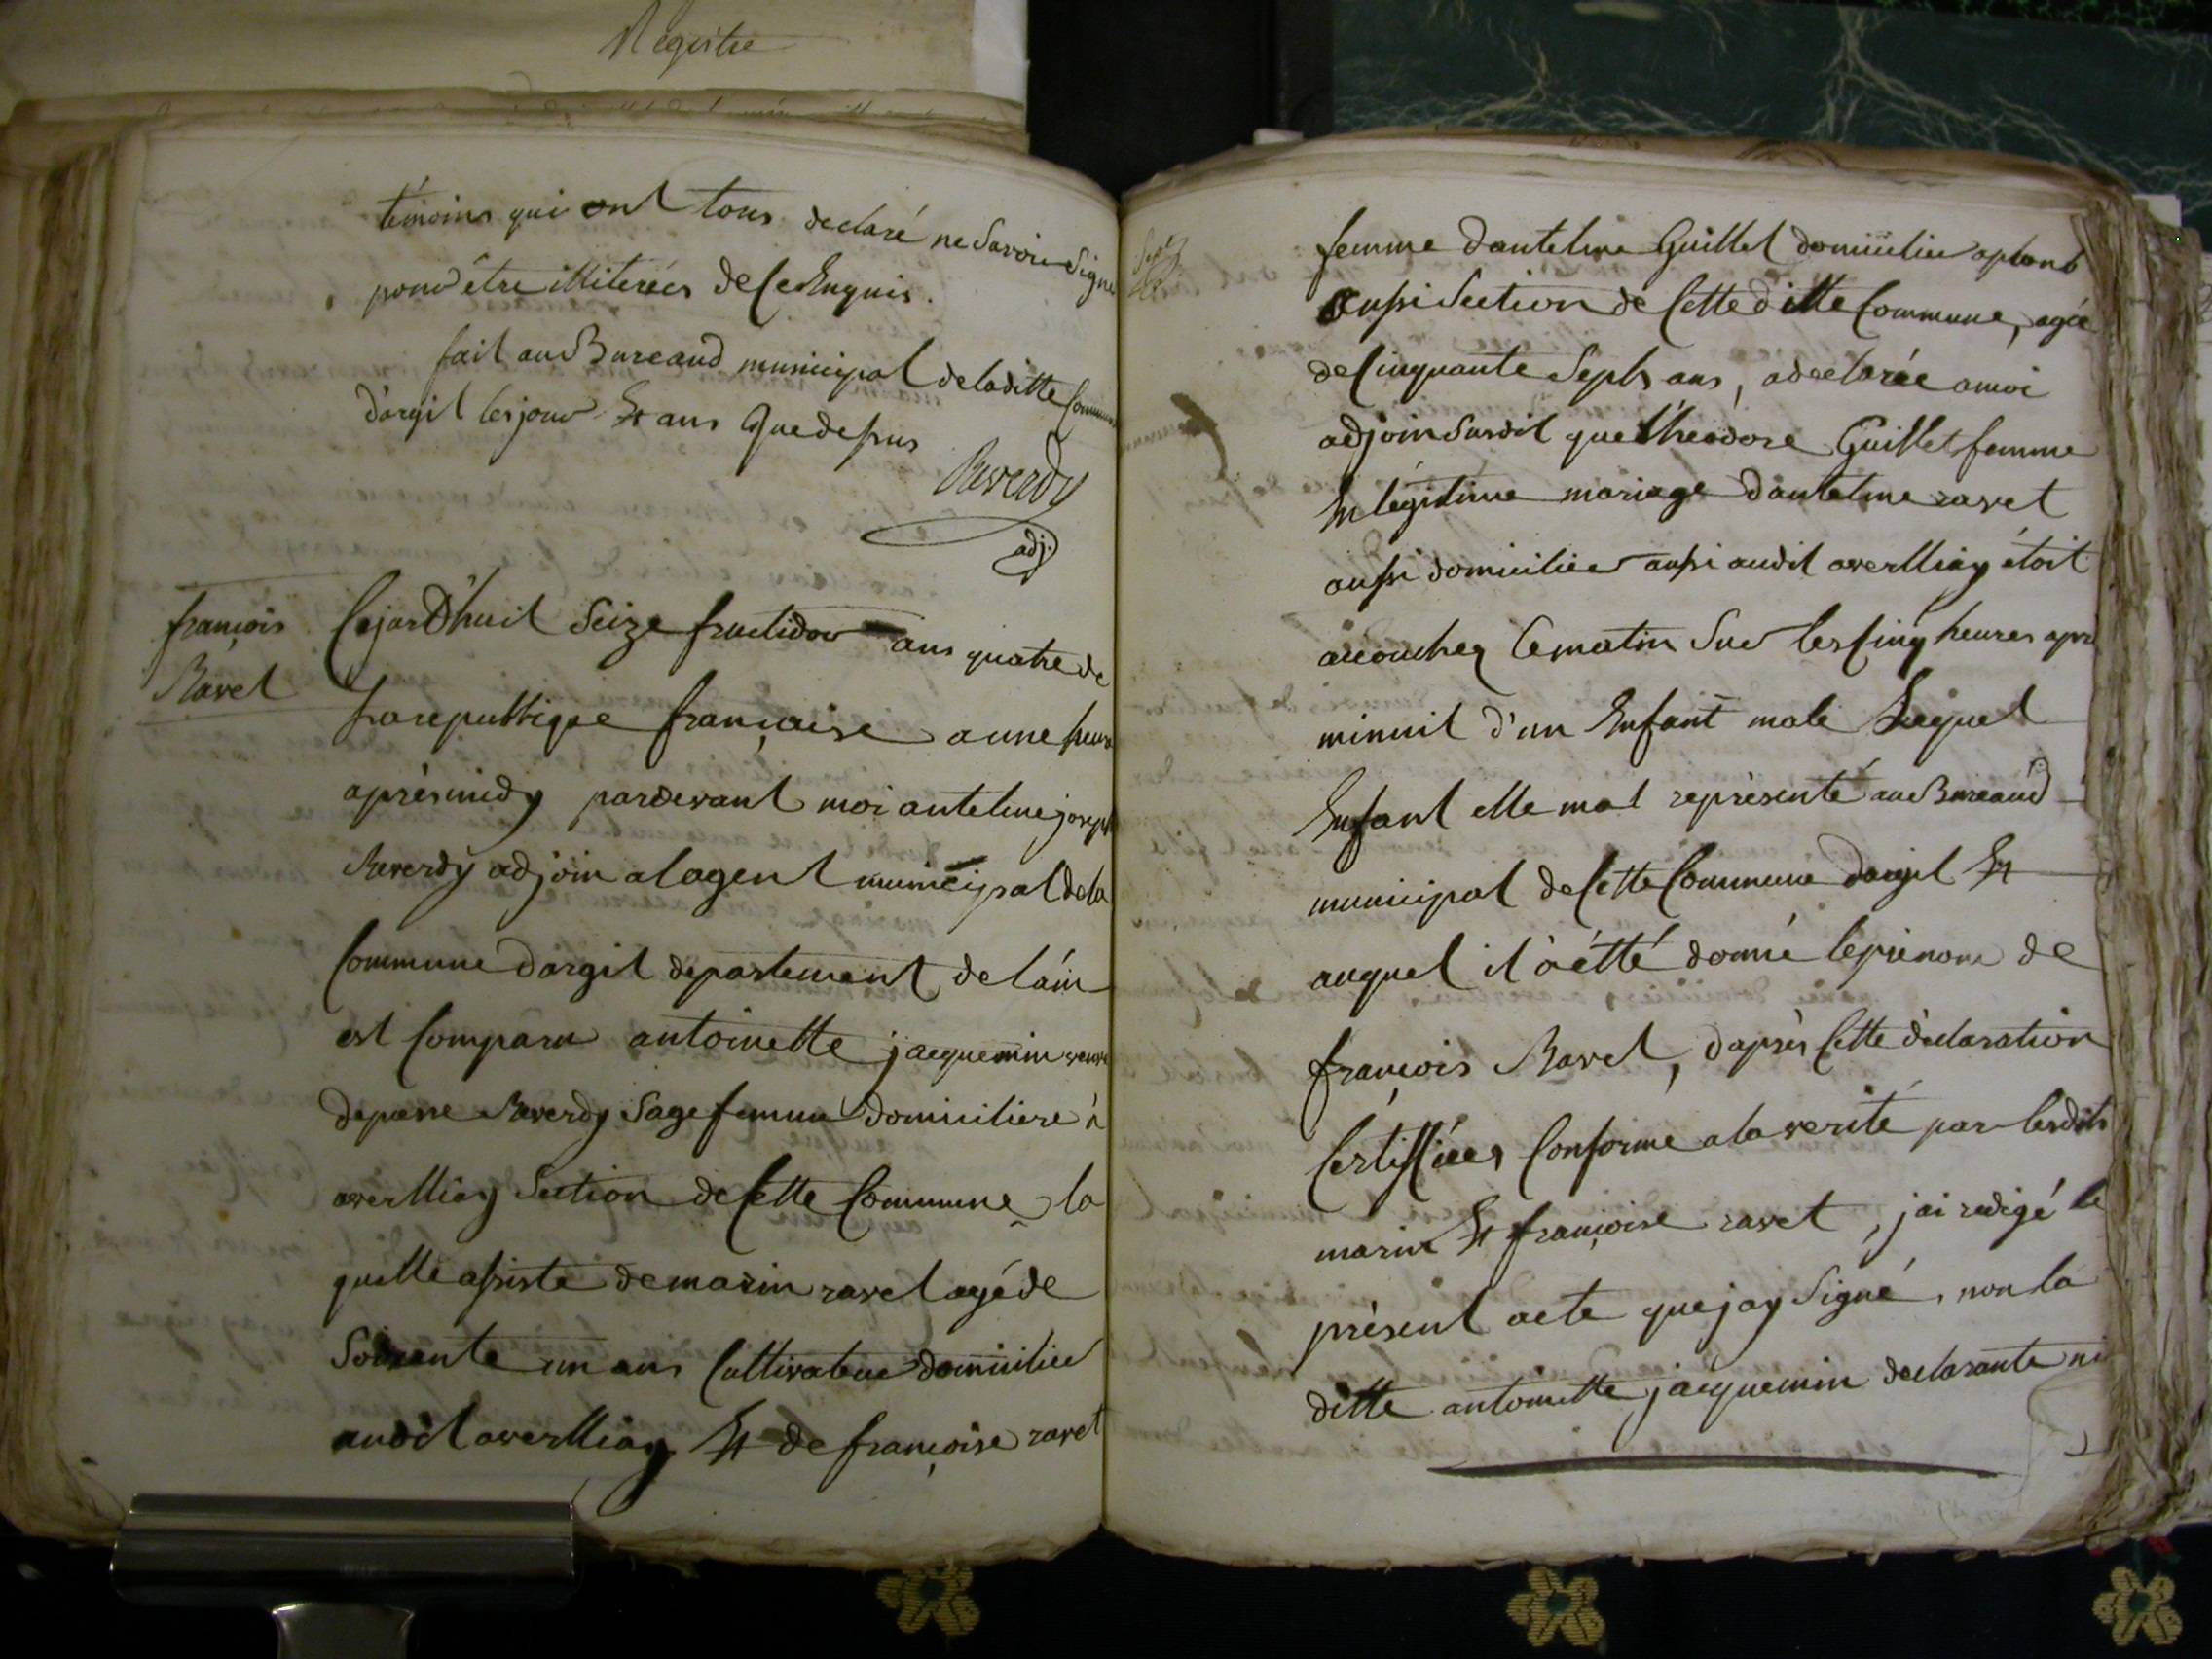 Registre
témoins qui ont tous declaré ne Savoir Signe
pour être illiterées de Ce Enquis.
fait au Bureaud municipal de laditte Commune
d'argil les jour Et ans Que dessus
Reverdy
adj.
françois
Ravet
Cejord'huit Seize fructidor ans quatre de
La republiqse française a une heure
aprèsmidy pardevant moi antelme joseph
Reverdy adjoin a lagent municipal de la
Commune dargil departement de l'ain
est Comparu antoinette jacquemin veuve
de pierre Reverdy Sage femme domiciliere à
averlliay Section de Cette Commune la
quelle assiste de marin ravet agé de
Soixante un ans Cultivateur domicilier
audit averlliay Et de françoise ravet
femme dantelme Guillet domicilier a plomb
aussi Section de Cette ditte Commune, agée
de Cinquante Septs ans, a declarée a moi
adjoin Susdit que théodore Guillet femme
En légitime mariage dantelme ravet
aussi domicilier aussi audit averlliay étoit
accouchez Ce matin Sur les Cinq heures apré
minuit d'un Enfant male Lequel
Enfant elle mat représenté au Bureaud
municipal de Cette Commune dargil Et
auquel il à étté donné le prénom de
françois Ravet, d'après Cette déclaration
Certiffiéer Conforme a la verité par lesdits
marin Et françoise ravet, jai redigé le
présent acte que jay Signé, non la
ditte antoinette jacquemin declarante ni